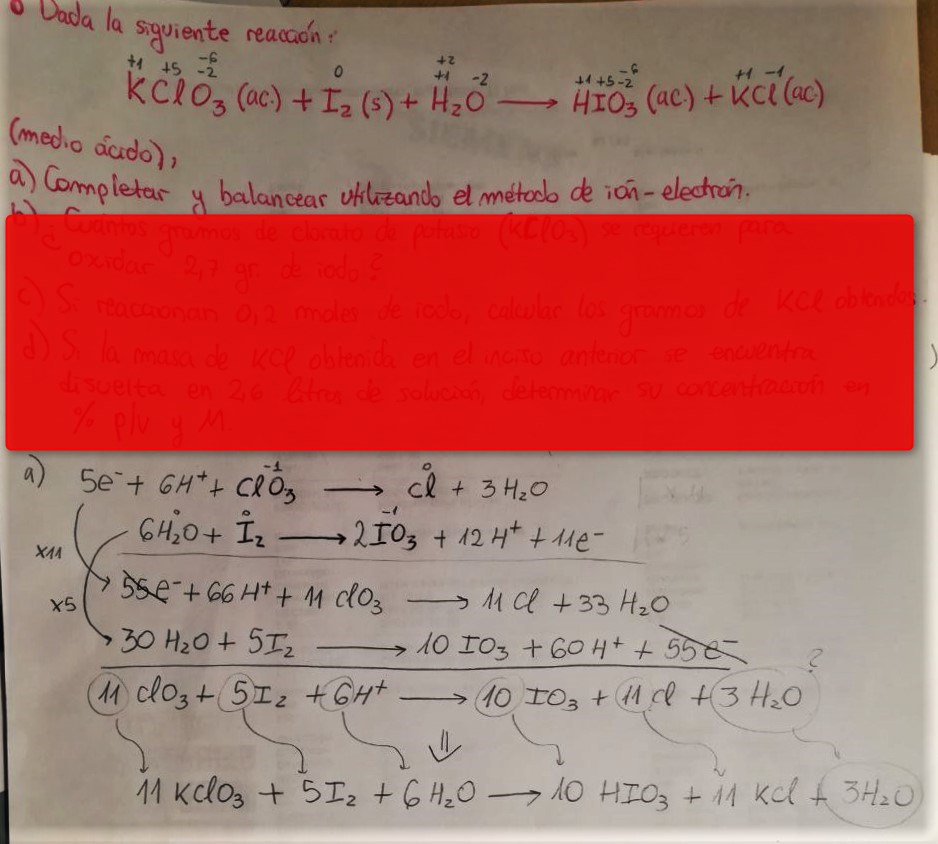 Dada la siguiente reacción:
+1 +5 -6 -2 0 +2 +1 -2 +1 +5 -6 -2 +1 -1
KClO₃ (ac.) + I₂ (s) + H₂O ⟶ HIO₃ (ac.) + KCl (ac)
(medio ácido),
a) Completar y balancear utilizando el método de ión-electrón.
b) ¿Cuántos gramos de clorato de potasio (KClO₃) se requieren para
oxidar 2,7 gr. de iodo?
c) Si reaccionan 0,2 moles de iodo, calcular los gramos de KCl obtenidos.
d) Si la masa de KCl obtenida en el inciso anterior se encuentra
disuelta en 2,6 litros de solución, determinar su concentración en
% p/v y M.
a) 5e⁻ + 6H⁺ + ClO₃⁻¹ ⟶ Cl⁰ + 3H₂O
6H₂O + I₂⁰ ⟶ 2IO₃⁻¹ + 12H⁺ + 11e⁻
x11
55e⁻ + 66H⁺ + 11 ClO₃ ⟶ 11 Cl + 33 H₂O
x5
30 H₂O + 5I₂ ⟶ 10 IO₃ + 60H⁺ + 55e⁻
?
11 ClO₃ + 5I₂ + 6H⁺ ⟶ 10 IO₃ + 11 Cl + 3 H₂O
⇓
11 KClO₃ + 5I₂ + 6H₂O ⟶ 10 HIO₃ + 11 KCl + 3H₂O